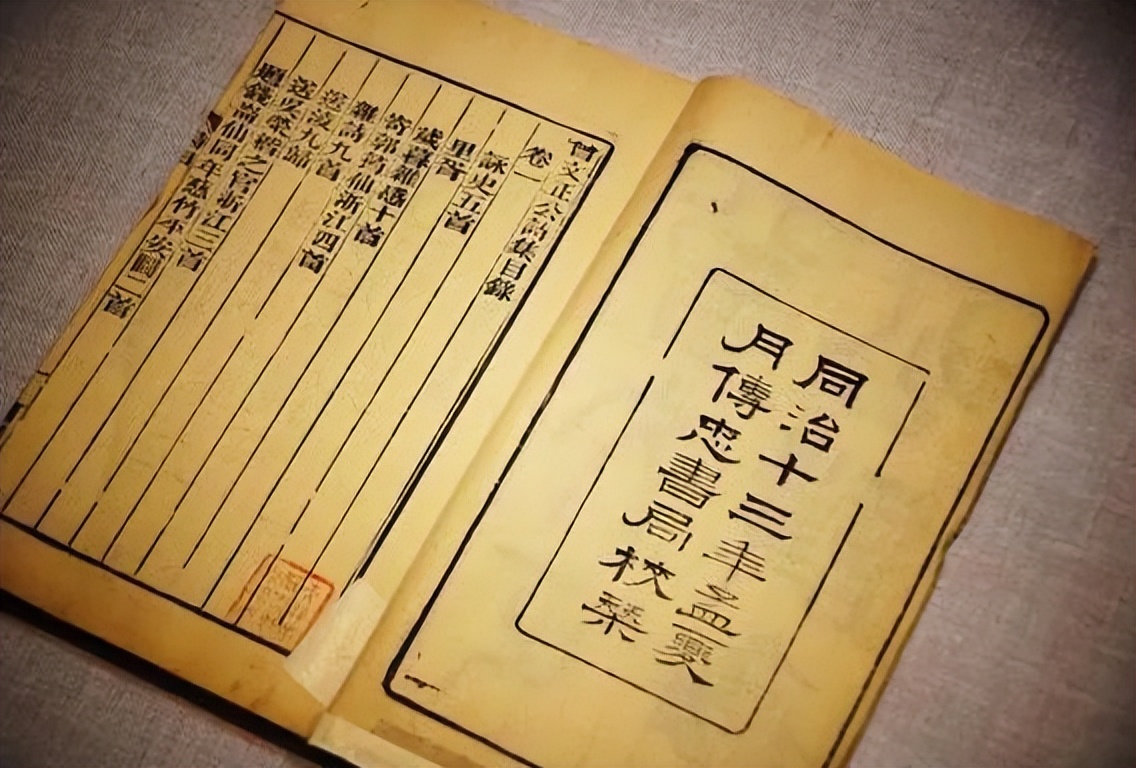 同治十三年孟夏
月傳忠書局校栞
曾文正公詩集目錄
卷一
詠史五首
里胥
歲暮雜感十首
寄郭筠仙浙江四首
雜詩九首
送淩九歸
送吳榮楷之官浙江三首
題錢崙仙同年慈竹平安圖二首